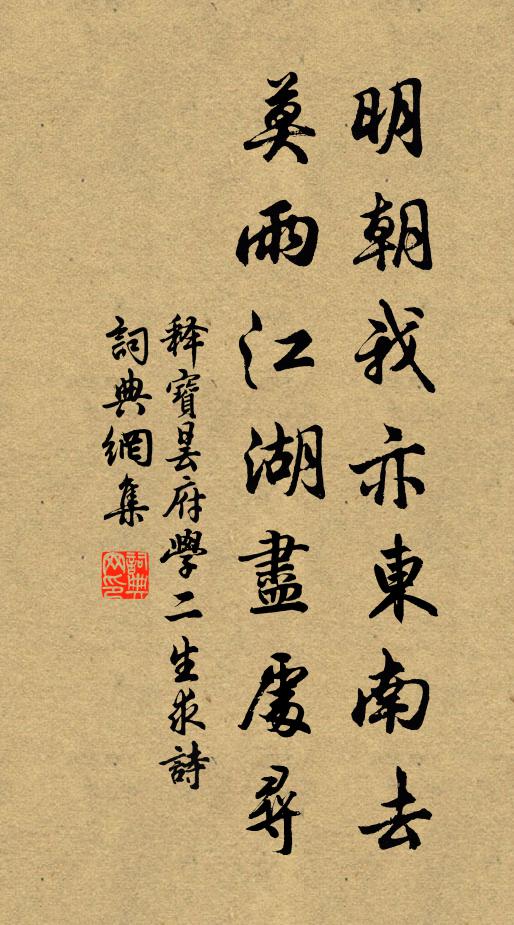 明朝我亦東南去
莫雨江湖盡處尋
釋寶曇府學二生求詩
詞典網集
詞典網印